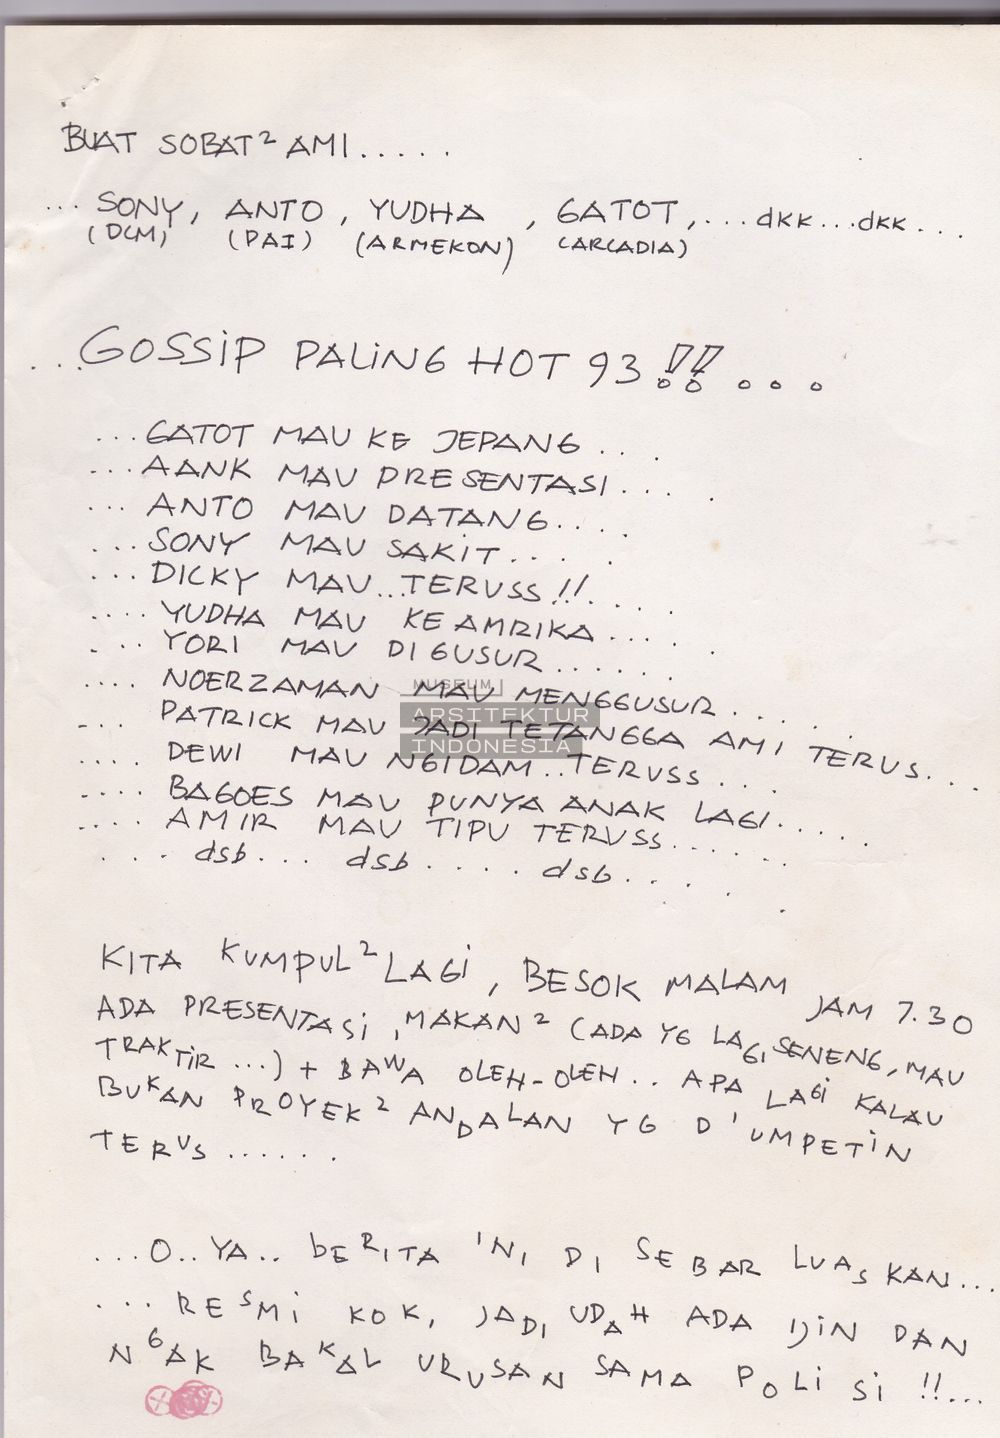 BUAT SOBAT² AMI.....
... SONY, ANTO, YUDHA, GATOT,...dkk...dkk...
(DCM) (PAI) (ARMEKON) (ARCADIA)
...GOSSIP PALING HOT 93 !!...
...GATOT MAU KE JEPANG....
...AANK MAU PRESENTASI....
...ANTO MAU DATANG....
...SONY MAU SAKIT....
...DICKY MAU...TERUSS!!....
....YUDHA MAU KE AMRIKA....
....YORI MAU DI GUSUR......
....NOERZAMAN MAU MENGGUSUR.....
....PATRICK MAU JADI TETANGGA AMI TERUS...
....DEWI MAU NGIDAM..TERUSS...
....BAGOES MAU PUNYA ANAK LAGI.....
....AMIR MAU TIPU TERUSS......
...dsb... dsb.... dsb.....
MUSEUM
ARSITEKTUR
INDONESIA
KITA KUMPUL² LAGI, BESOK MALAM JAM 7.30
ADA PRESENTASI, MAKAN² (ADA YG LAGI SENENG, MAU
TRAKTIR...) + BAWA OLEH-OLEH.. APA LAGI KALAU
BUKAN PROYEK² ANDALAN YG D'UMPETIN
TERUS......
...O..YA.. BERITA INI DI SEBAR LUASKAN...
...RESMI KOK, JADI UDAH ADA IJIN DAN
NGAK BAKAL URUSAN SAMA POLISI !!...